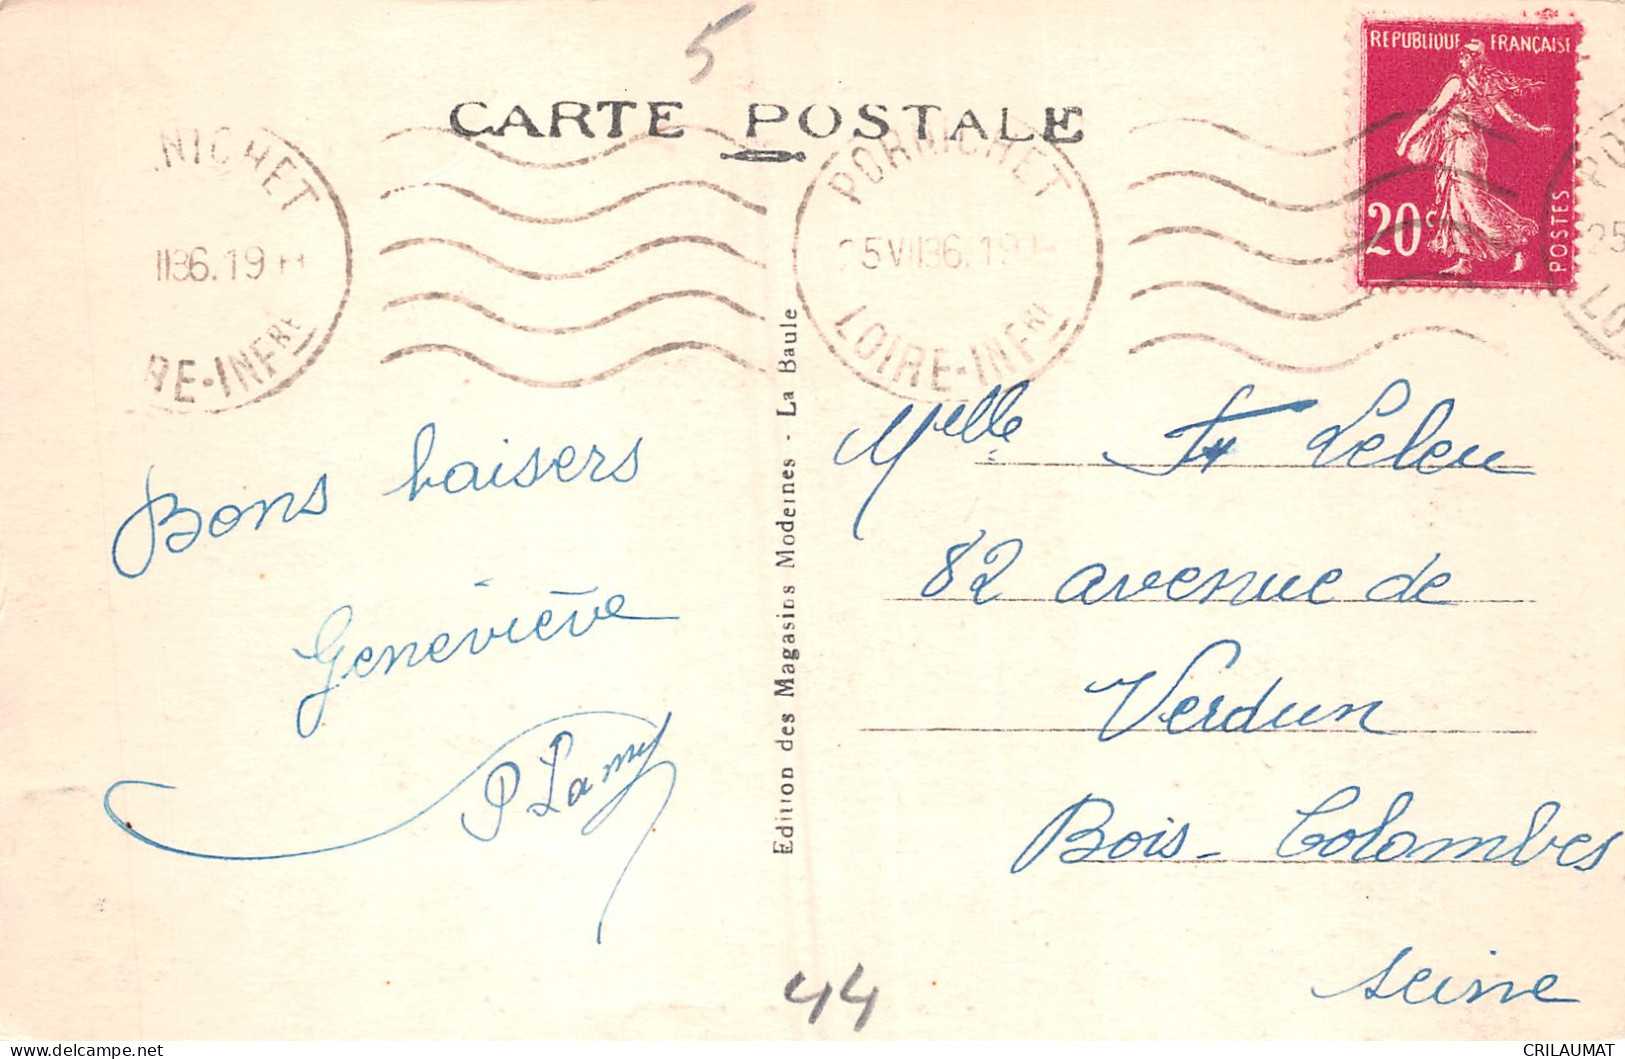 5
CARTE POSTALE
REPUBLIQUE FRANÇAISE
20c
POSTES
NICHET
II36.19 H
RE-INFRE
PORNICHET
25 VII36.19 H
LOIRE-INFRE
PO
25
LO
Edition des Magasins Modernes - La Baule
Bons baisers
Geneviève
P Lamy
Melle Leleu
82 avenue de
Verdun
Bois-Colombes
Seine
44
CRILAUMAT